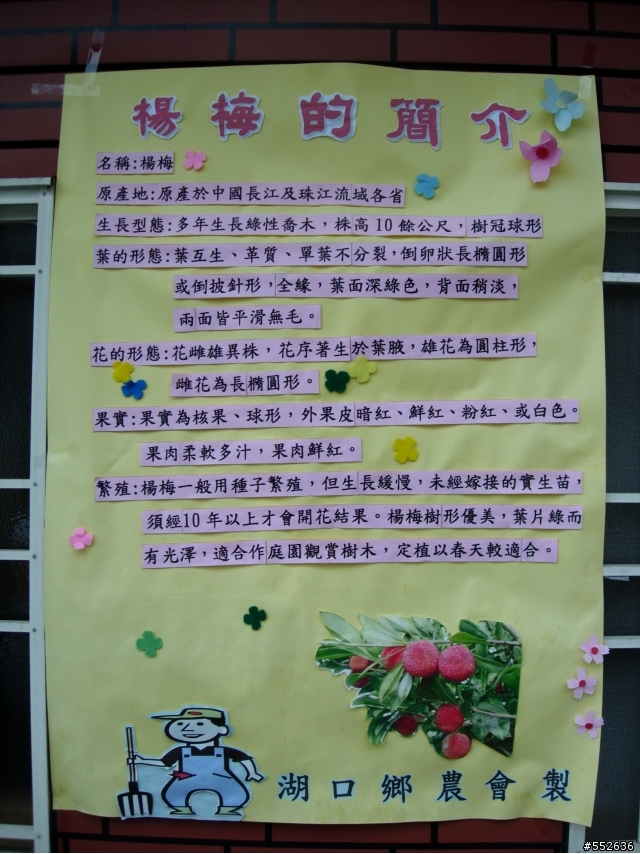 楊梅的簡介
名稱:楊梅
原產地:原產於中國長江及珠江流域各省
生長型態:多年生長綠性喬木，株高10餘公尺，樹冠球形
葉的形態:葉互生、革質、單葉不分裂，倒卵狀長橢圓形
或倒披針形，全緣，葉面深綠色，背面稍淡，
兩面皆平滑無毛。
花的形態:花雌雄異株，花序著生於葉腋，雄花為圓柱形，
雌花為長橢圓形。
果實:果實為核果、球形，外果皮暗紅、鮮紅、粉紅、或白色。
果肉柔軟多汁，果肉鮮紅。
繁殖:楊梅一般用種子繁殖，但生長緩慢，未經嫁接的實生苗，
須經10年以上才會開花結果。楊梅樹形優美，葉片綠而
有光澤，適合作庭園觀賞樹木，定植以春天較適合。
湖口鄉農會製
#552636